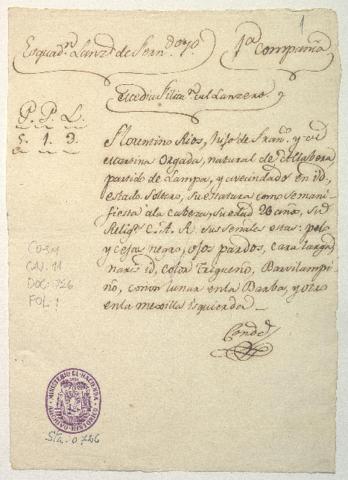 1
Esquad.n Lanz.s de Fern.do 7.o 1.a Compañia
Media Filia.n del Lanzero
P. P. L.
5. 1. 3.
Florentino Rios, hijo de Fran.co y de
Marsina Orgada, natural de
partido de Lampa, y avecindado en id.
estado Soltero, su estatura como semani-
fiesta ala cabeza, su edad 26 años, su
Relig.n C. A. R. sus señales estas: pelo
y cejas negro, ojos pardos, cara larga,
naris id. color Trigueño, Barvilampi-
ño, con un lunar enla Barba, y otro
enla mexilla Izquierda
Conde
CO-SM
CAJ. 11
DOC: 726
FOL: 1
MINISTERIO DE HACIENDA
Sta. 0726